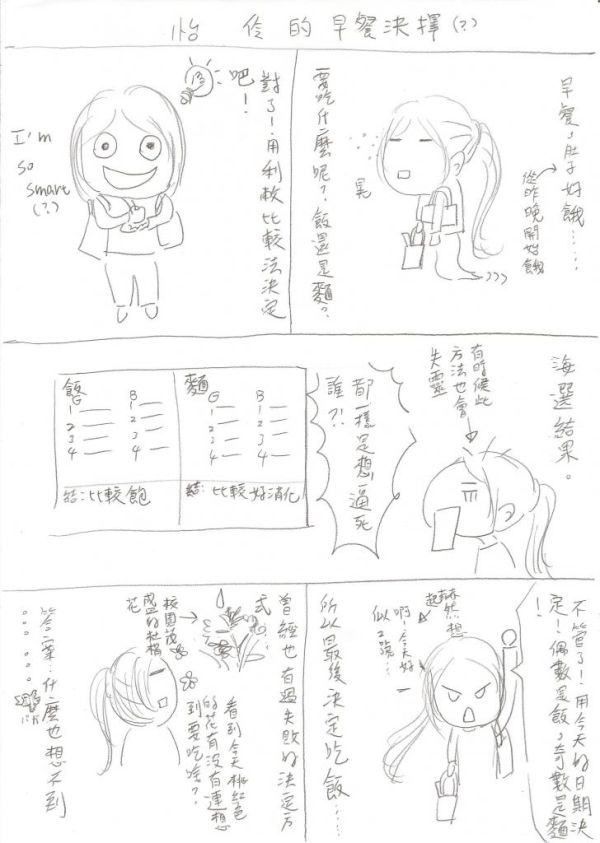 怡伶的早餐決擇(?)
早餐，肚子好餓……
從昨晚開始餓
要吃什麼呢？飯還是麵？
晃
對了！用利軟比較法決定
吧！
I'm
so
smart
(?)
海選結果。
有時候此
方法也會
失靈
都一樣是想逼死
誰?!
飯
G B
1 1
2 2
3 3
4 4
結：比較飽
麵
G B
1 1
2 2
3 3
4 4
結：比較好消化
不管了！用今天的日期決
定！偶數是飯，奇數是麵
！
赫然想
起
啊！今天好
似2號…
所以最後決定吃飯……
曾經也有過失敗的決定方
式啦：
校園茂
盛的杜鵑
花
看到今天桃紅色
的花有沒有連想
到要吃啥？
答案：什麼也想不到
……